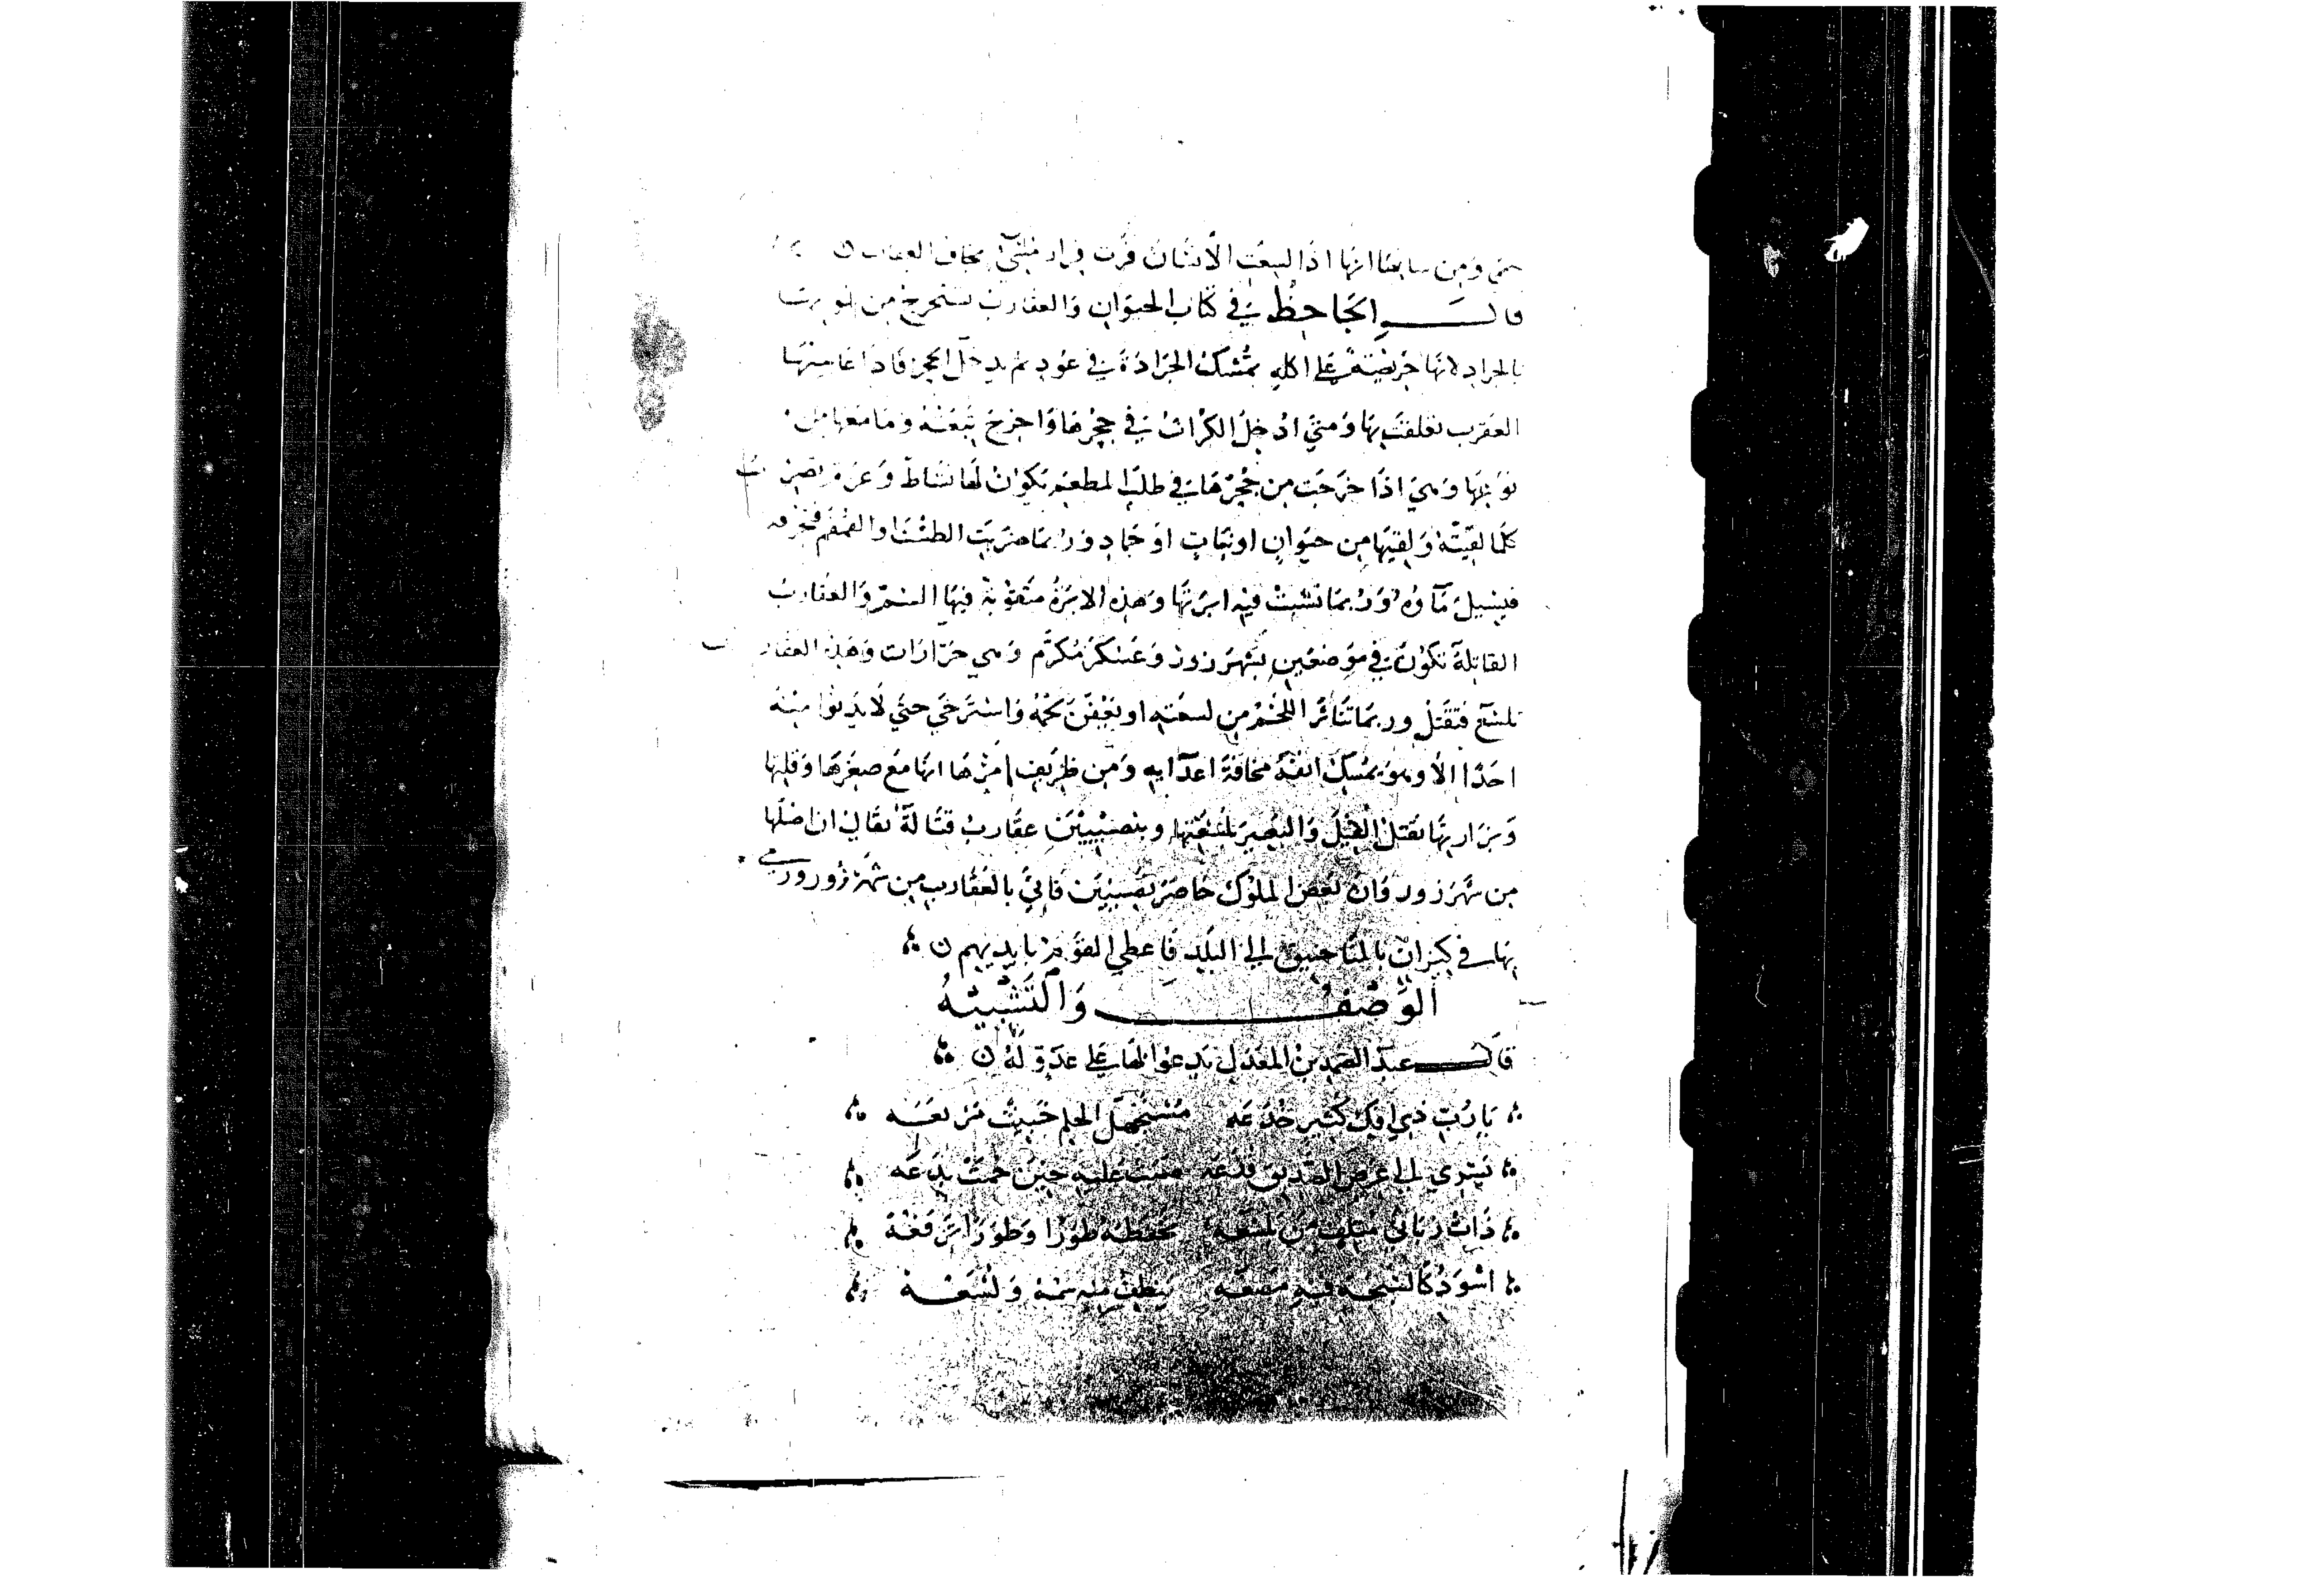 ومن شانها انها اذا لسعت الانسان فرت فرار مسيء يخاف العقاب
قال الجاحظ في كتاب الحيوان والعقارب تستخرج من بيوتها
بالجراد لانها حريصة على اكله تمسك الجرادة في عود ثم يدخل الجحر فاذا عاينتها
العقرب تعلقت بها ومتى ادخل الكراث في جحرها واخرج تبعته وما معها من
نوعها وهي اذا خرجت من جحرها في طلب المطعم يكون لها نشاط وعزة تضرب
كلما لقيته ولقيها من حيوان او نبات او جماد وربما ضربت الطست والقمقم فتخرقه
فيسيل ماؤه وربما نشبت فيه ابرتها وهذه الابرة مثقوبة فيها السم والعقارب
القاتلة تكون في موضعين بشهرزور وعسكر مكرم وهي جرارات وهذه العقارب
تلسع فتقتل وربما تناثر اللحم من لسعته او تعفن لحمه واسترخى حتى لا يدنوا منه
احد الا وهو يمسك انفه مخافة اعدايه ومن ظريف امرها انها مع صغرها وقلتها
ونزارتها تقتل الفيل والبعير بلسعتها وبنصيبين عقارب قتالة يقال ان اصلها
من شهرزور وان بعض الملوك حاصر نصيبين فاتي بالعقارب من شهرزور ورمي
بها في كيزان بالمناجيق الي البلد فاعطي القوم بايديهم
الوصف والتشبيه
قال عبد الصمد بن المعذل يدعوا بها على عدو له
يا رب ذي افك كثير خدعه مستجهل الحلم خبيث مرتعه
يسري الي عرض الصديق قذعه صبت عليه حين جمت بدعه
ذات ذنابي متلف من تلسعه تخفضه طورا وطورا ترفعه
اسود كالسبجة فيه مبضعه ينطف منه سمه ولسعه